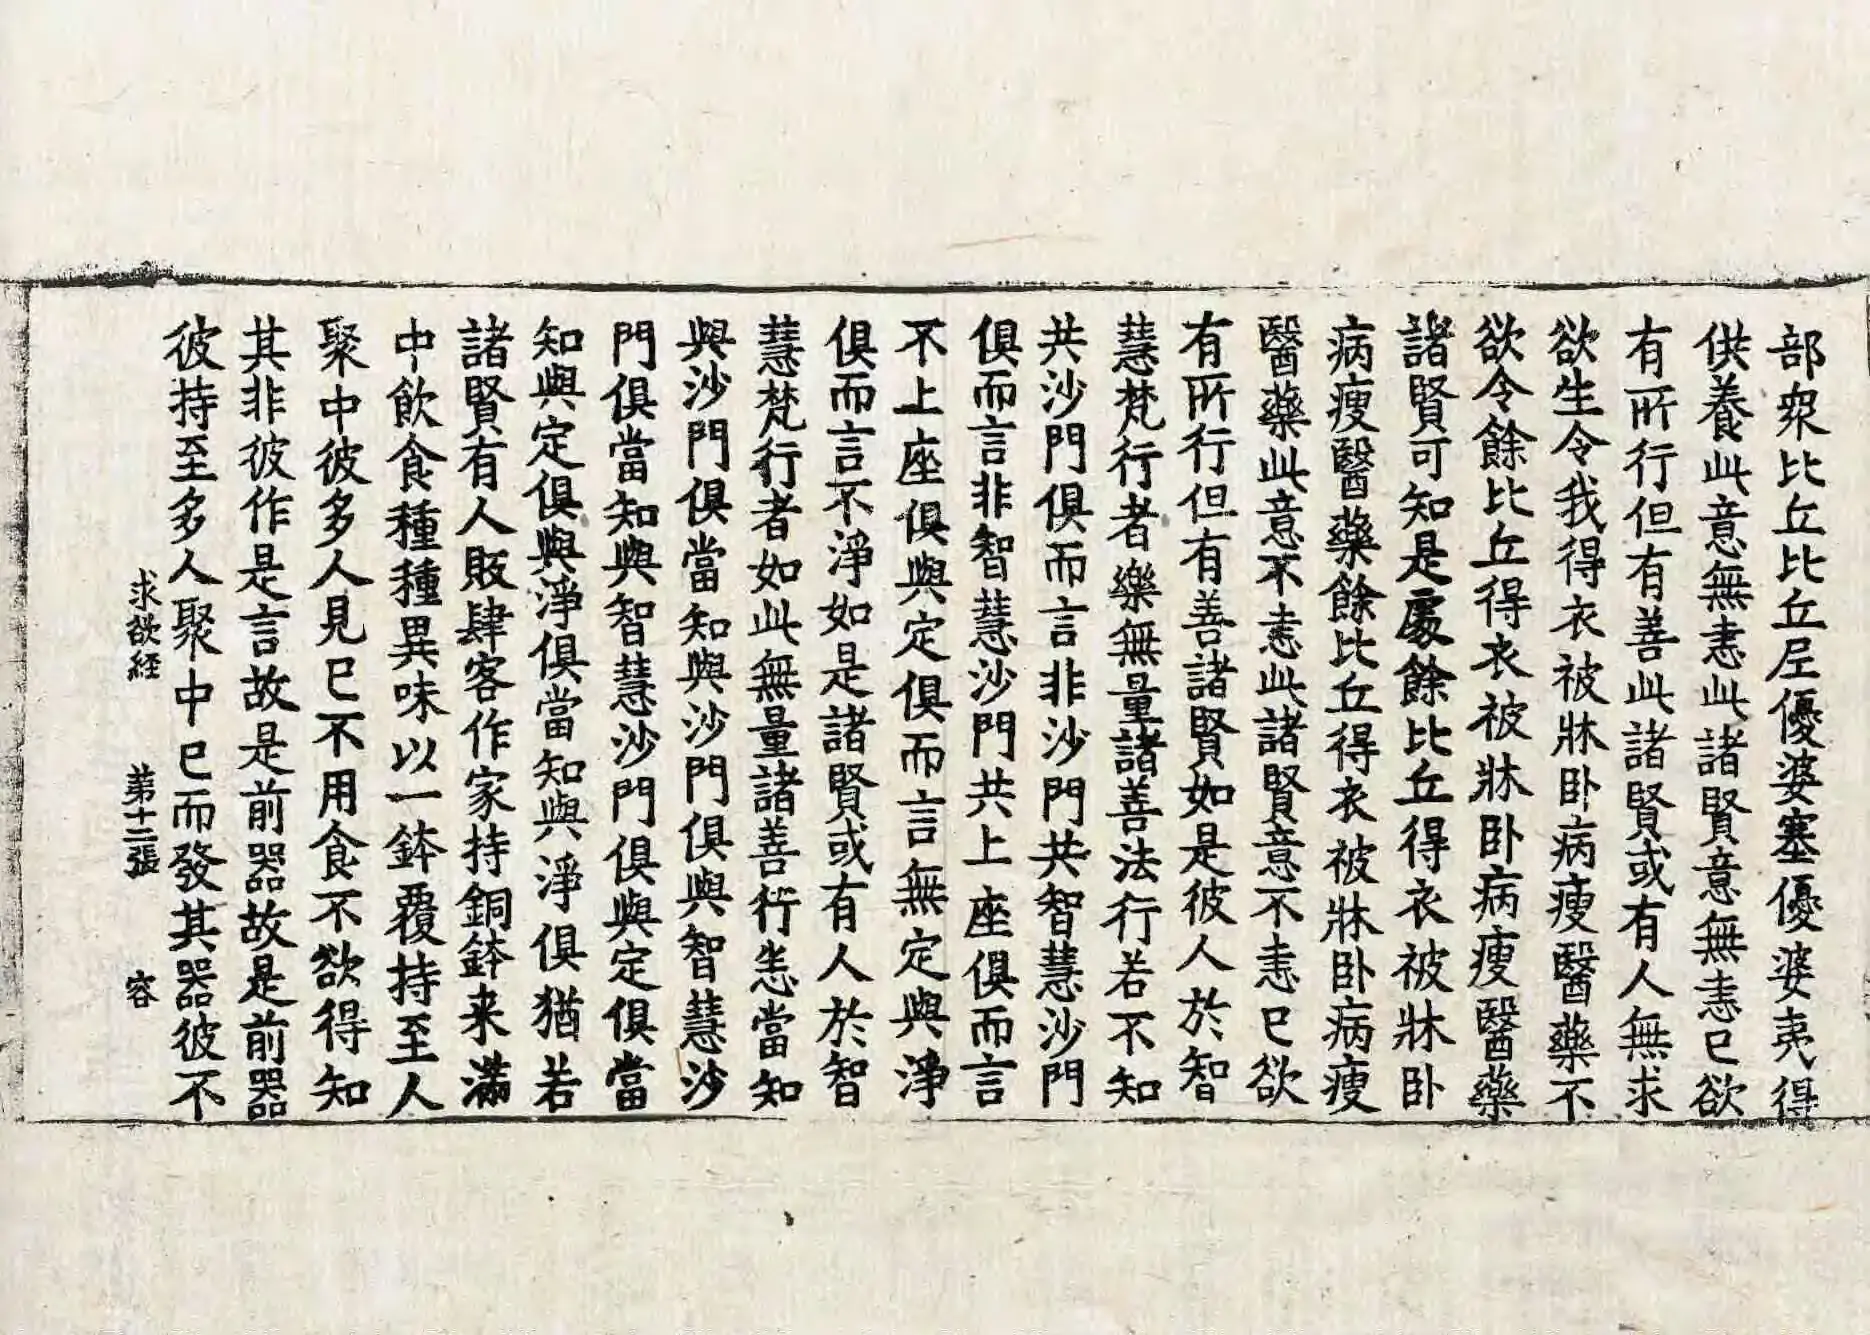 部眾比丘比丘尼優婆塞優婆夷得
供養此意無恚此諸賢意無恚已欲
有所行但有善此諸賢或有人無求
欲生令我得衣被牀卧病瘦醫藥不
欲令餘比丘得衣被牀卧病瘦醫藥
諸賢可知是處餘比丘得衣被牀卧
病瘦醫藥餘比丘得衣被牀卧病瘦
醫藥此意不恚此諸賢意不恚已欲
有所行但有善諸賢如是彼人於智
慧梵行者樂無量諸善法行若不知
共沙門俱而言非沙門共智慧沙門
俱而言非智慧沙門共上座俱而言
不上座俱與定俱而言無定與淨
俱而言不淨如是諸賢或有人於智
慧梵行者如此無量諸善行恙當知
與沙門俱當知與沙門俱與智慧沙
門俱當知與智慧沙門俱與定俱當
知與定俱與淨俱當知與淨俱猶若
諸賢有人販肆客作家持銅鉢来滿
中飲食種種異味以一鉢覆持至人
聚中彼多人見已不用食不欲得知
其非彼作是言故是前器故是前器
彼持至多人聚中已而發其器彼不
求欲経 第十二張 容